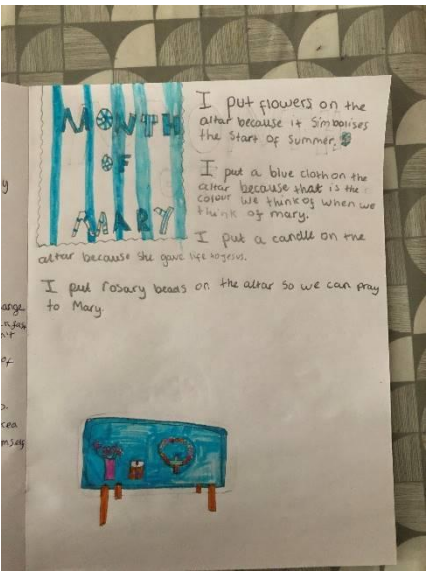 MONTH
OF
MARY
I put flowers on the
altar because it Simbolises
the Start of Summer.
I put a blue cloth on the
altar because that is the
colour we think of when we
think of mary.
I put a candle on the
altar because she gave life to jesus.
I put rosary beads on the altar so we can pray
to Mary.